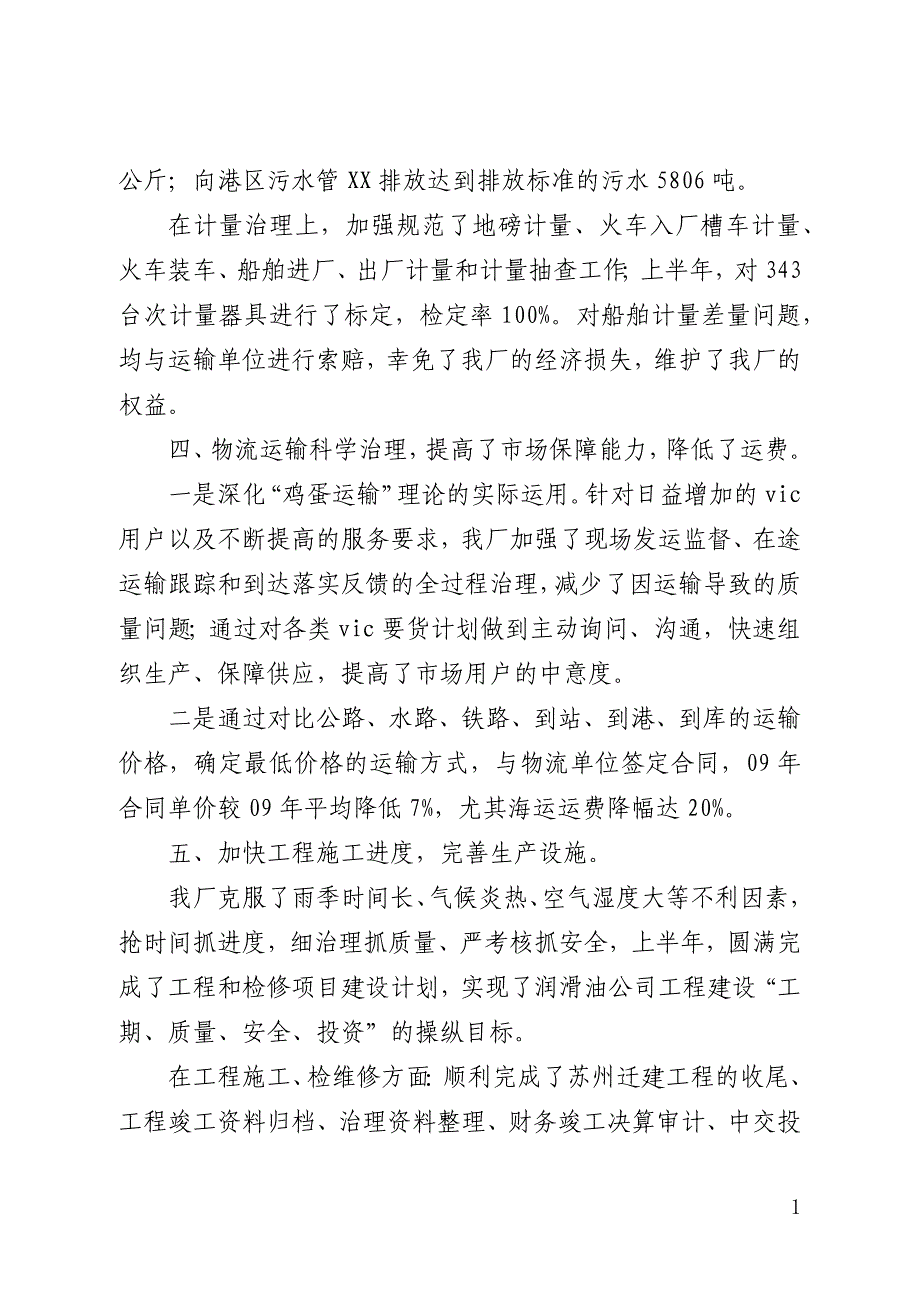 公斤；向港区污水管 XX 排放达到排放标准的污水 5806 吨。
在计量治理上，加强规范了地磅计量、火车入厂槽车计量、
火车装车、船舶进厂、出厂计量和计量抽查工作；上半年，对 343
台次计量器具进行了标定，检定率 100%。对船舶计量差量问题，
均与运输单位进行索赔，幸免了我厂的经济损失，维护了我厂的
权益。
四、物流运输科学治理，提高了市场保障能力，降低了运费。
一是深化“鸡蛋运输”理论的实际运用。针对日益增加的 vic
用户以及不断提高的服务要求，我厂加强了现场发运监督、在途
运输跟踪和到达落实反馈的全过程治理，减少了因运输导致的质
量问题；通过对各类 vic 要货计划做到主动询问、沟通，快速组
织生产、保障供应，提高了市场用户的中意度。
二是通过对比公路、水路、铁路、到站、到港、到库的运输
价格，确定最低价格的运输方式，与物流单位签定合同，09 年
合同单价较 09 年平均降低 7%，尤其海运运费降幅达 20%。
五、加快工程施工进度，完善生产设施。
我厂克服了雨季时间长、气候炎热、空气湿度大等不利因素，
抢时间抓进度，细治理抓质量、严考核抓安全，上半年，圆满完
成了工程和检修项目建设计划，实现了润滑油公司工程建设“工
期、质量、安全、投资”的操纵目标。
在工程施工、检维修方面：顺利完成了苏州迁建工程的收尾、
工程竣工资料归档、治理资料整理、财务竣工决算审计、中交投
1